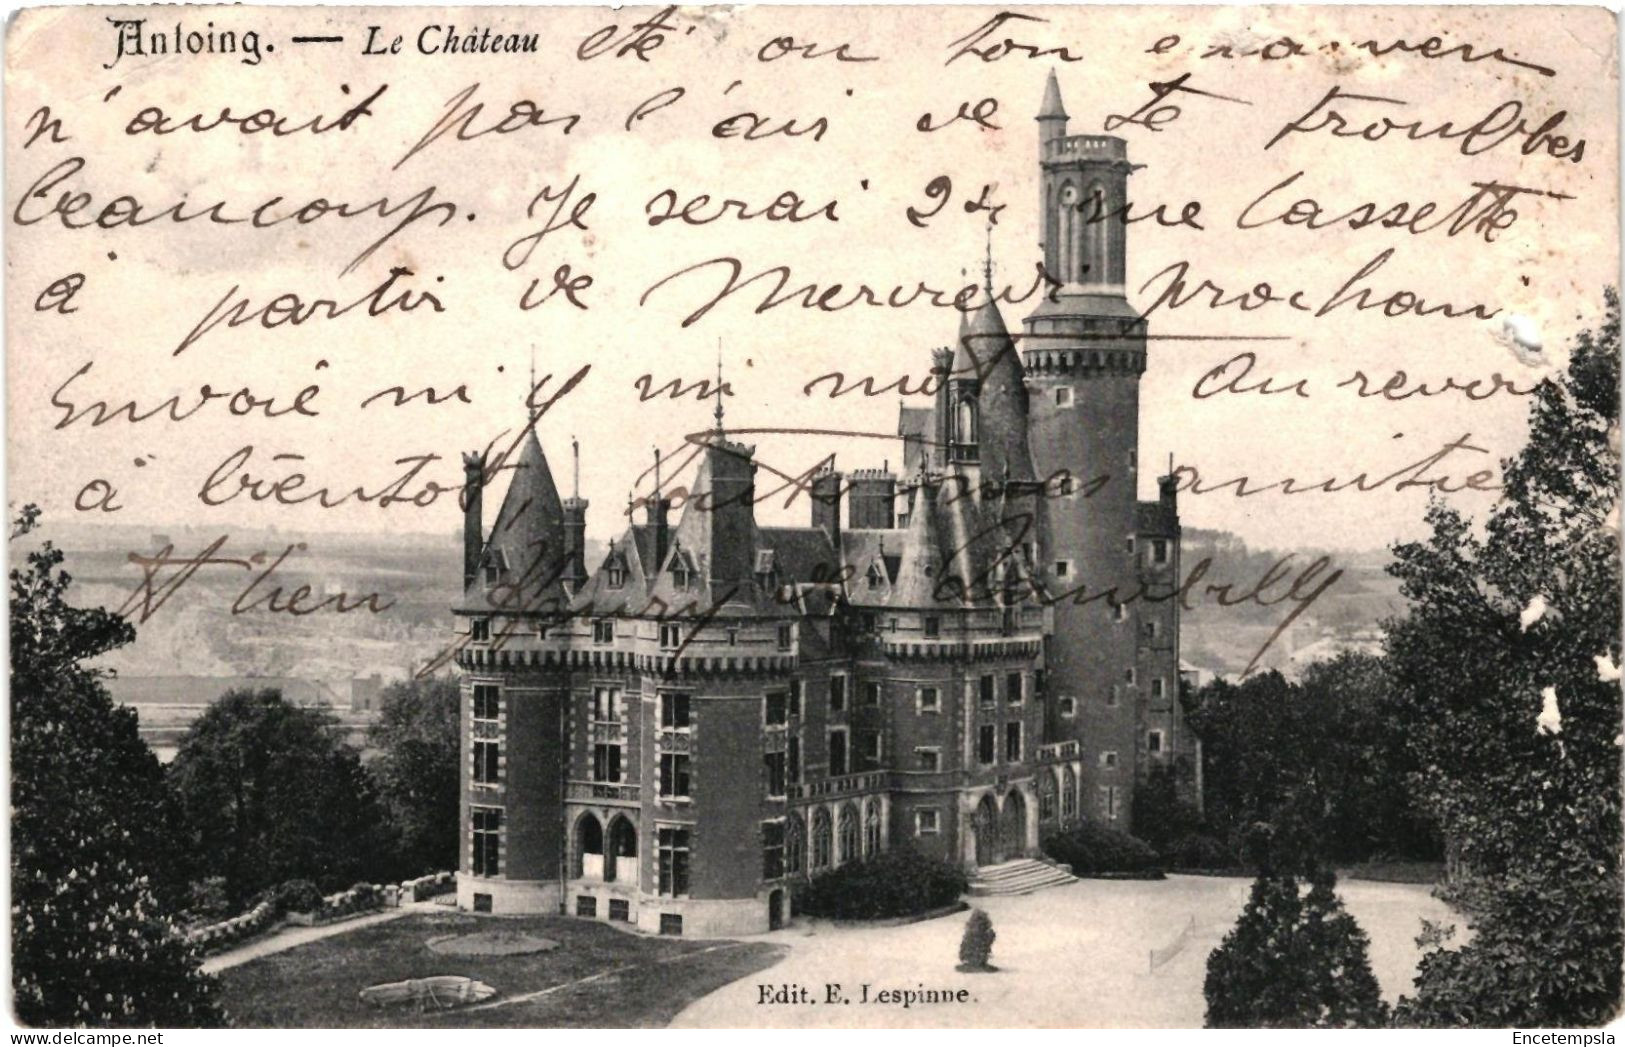 Antoing. — Le Château été ou ton examen
n'avait pas l'air de te troubles
beaucoup. Je serai 24 rue Cassette
à partir de Mercredi prochain
Envoie m'y un mot Au revoir
à bientôt, toutes mes amitiés
tien Henry de
Edit. E. Lespinne.
Encetempsla